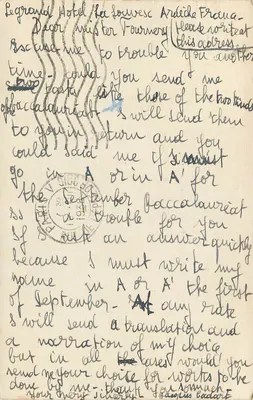 Legrand Hotel La Louvesc Ardèche France
Dear Mister Fournery please write at
this address
Excuse me to trouble you another
time. Could you send me
two tests like those of the two kinds
of baccalauréat I will send them
to you in return and you
could said me if I must
go in A or in A' for
the September Baccalauréat
trouble for you
If I ask an answer quickly
because I must write my
name in A or A' the first
of September. At any rate
I will send a translation and
a narration of my choice
but in all cases would you
send me your choice for works to be
done by me - thank you so much
your very sincerely